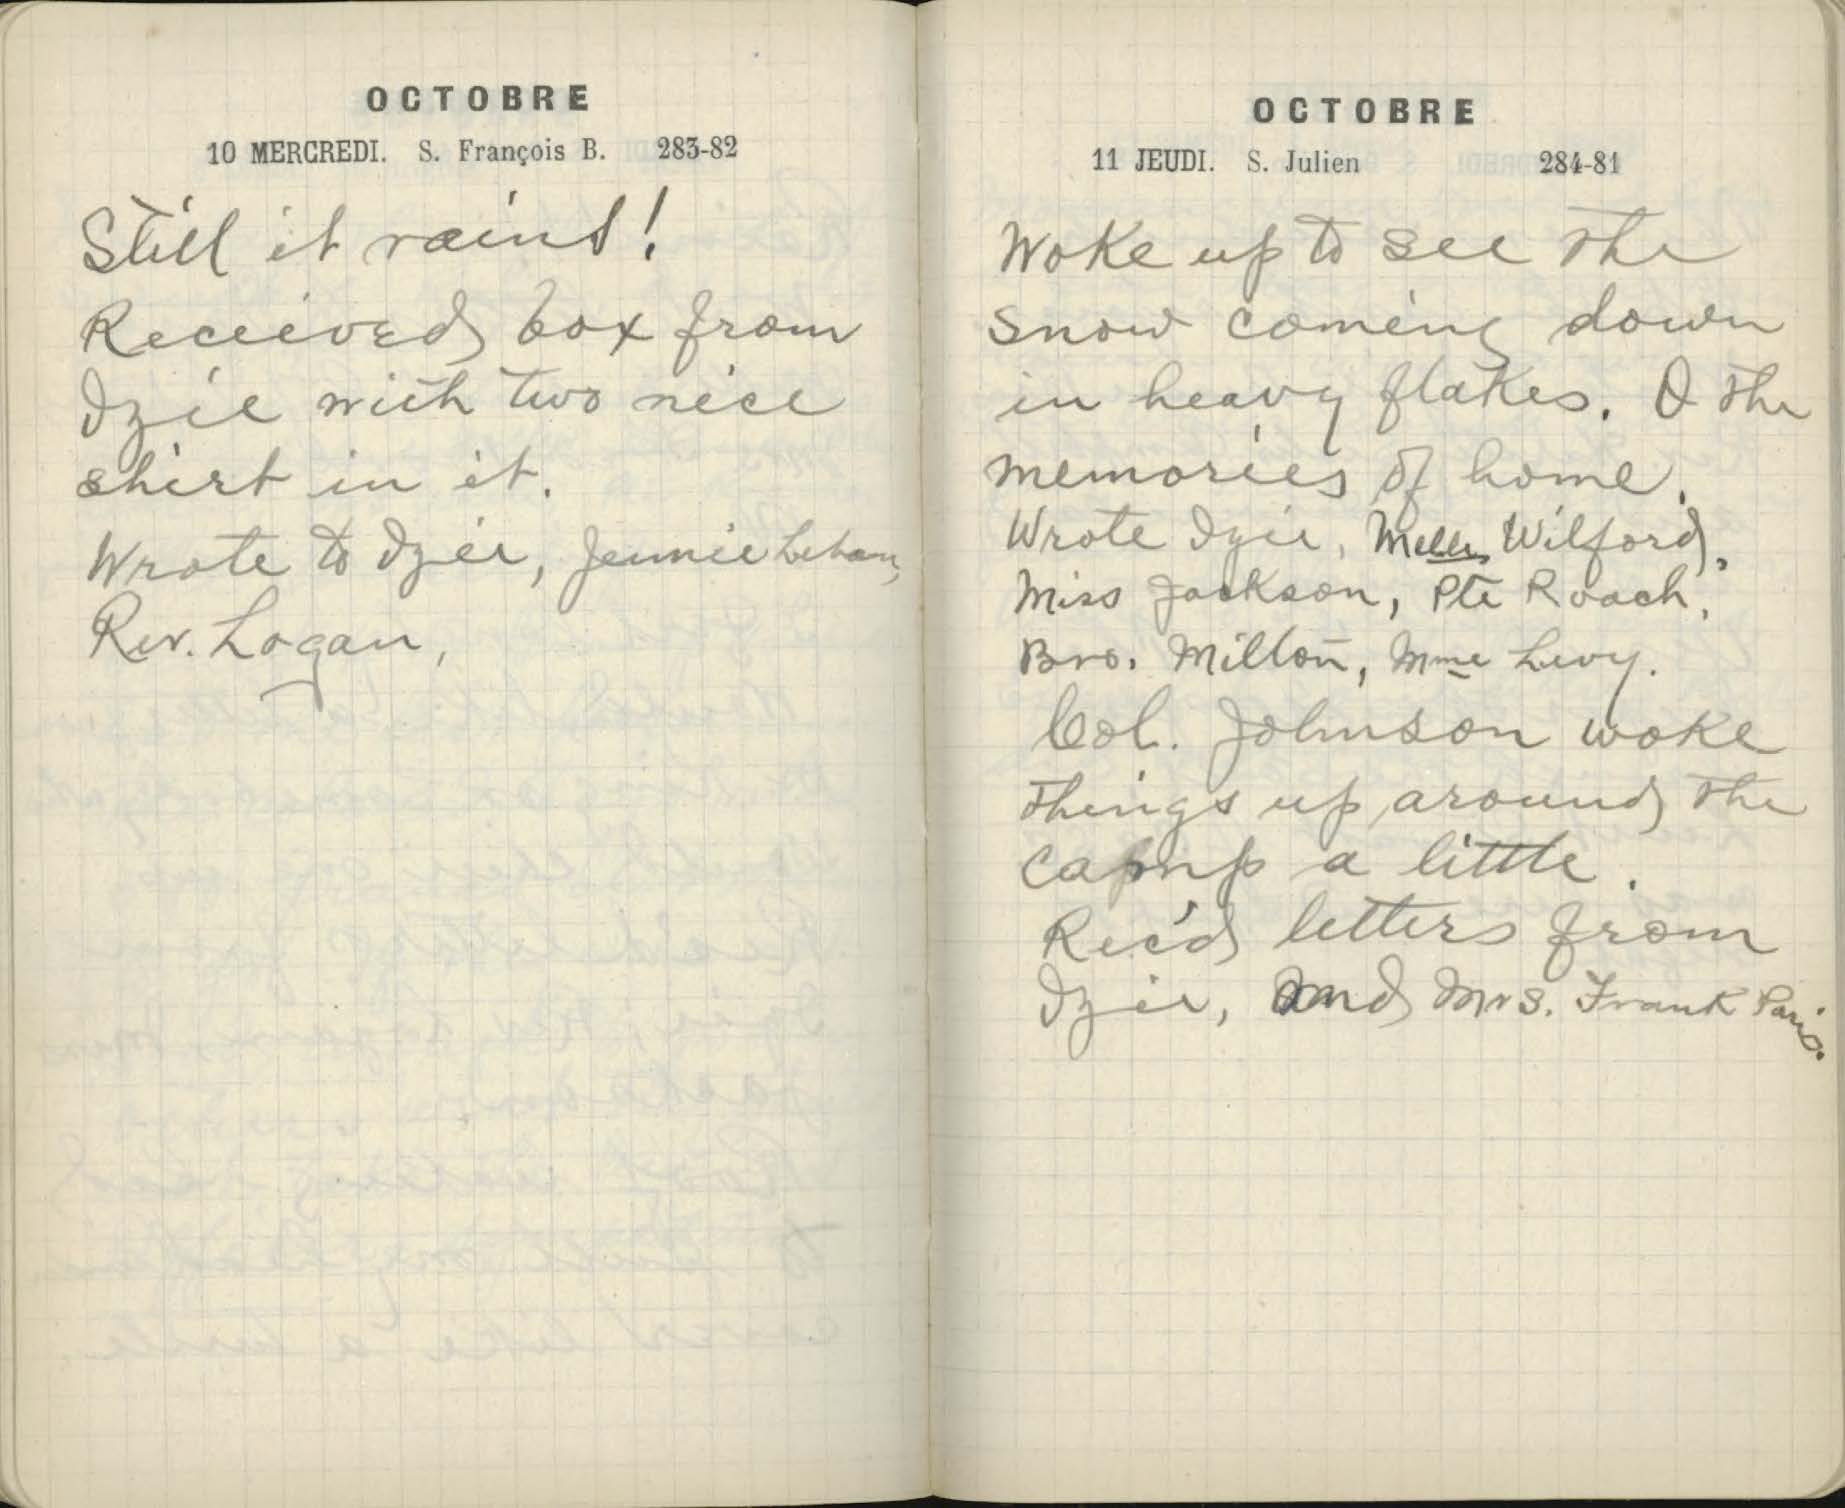 OCTOBRE
10 MERCREDI. S. François B. 283-82
Still it rains!
Received box from
Izie with two nice
shirt in it.
Wrote to Izie, Jennie
Rev. Logan,
OCTOBRE
11 JEUDI. S. Julien 284-81
Woke up to see the
snow coming down
in heavy flakes. O the
memories of home.
Wrote Izie, Melle Wilford,
Miss Jackson, Pte Roach,
Bro. Milton, Mme Levy.
Col. Johnson woke
things up around the
camp a little.
Rec'd letters from
Izie, and Mrs. Frank Paris.